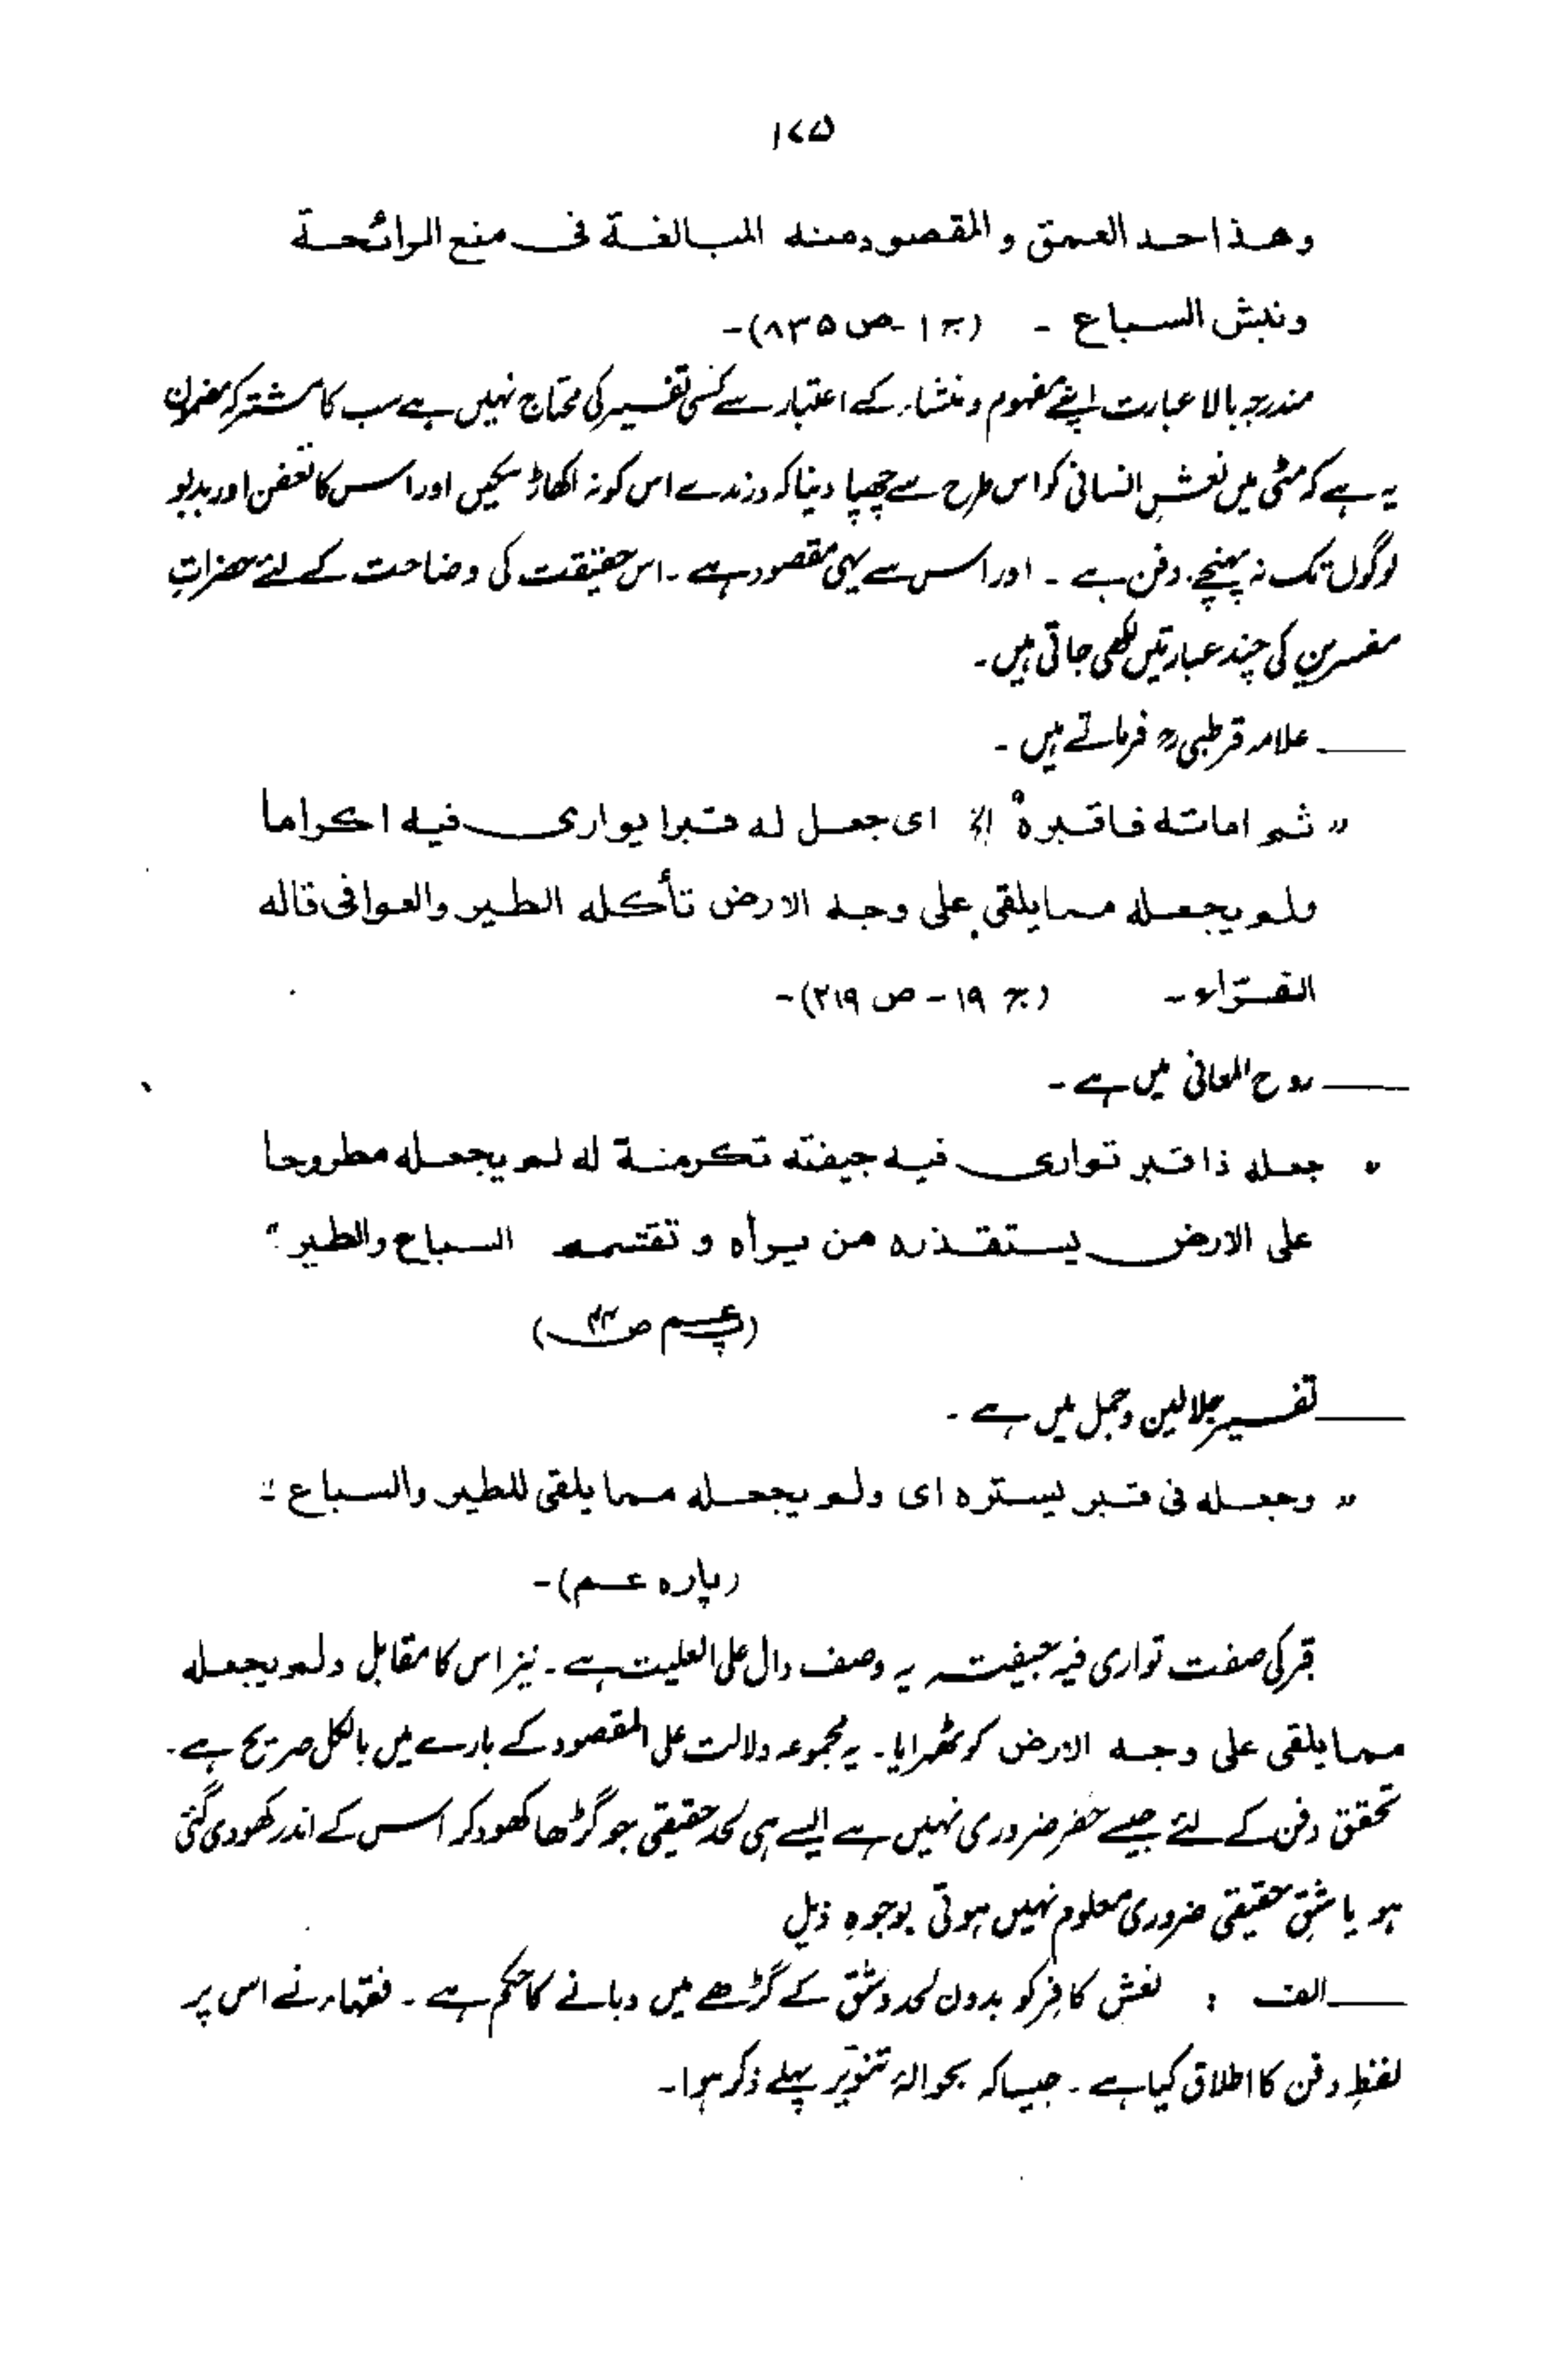 ۱۷۵
وهذا حد العمق والمقصود منه المبالغة فی منع الرائحة
ونبش السباع - (ج ۱ - ص ۸۳۵)-
مندرجہ بالا عبارت اپنے مفہوم و منشاء کے اعتبار سے کسی تفسیر کی محتاج نہیں ہے سب کا مشترکہ مضمون
یہ ہے کہ مٹی میں نعشِ انسانی کو اس طرح سے چھپا دینا کہ درندے اس کو نہ اکھاڑ سکیں اور اس کا تعفن اور بدبو
لوگوں تک نہ پہنچے، دفن ہے ۔ اور اس سے یہی مقصود ہے ۔ اس حقیقت کی وضاحت کے لئے حضراتِ
مفسرین کی چند عبارتیں لکھی جاتی ہیں۔
علامہ قرطبیؒ فرماتے ہیں ۔
" ثم اماته فاقبرهٗ الخ ای جعل له قبرا یواری فیه اکراما
ولم یجعله مما یلقی علی وجه الارض تأکله الطیر والعوافی قاله
الفرّاء - (ج ۱۹ - ص ۲۱۹)-
روح المعانی میں ہے ۔
" جعله ذا قبر تواری فیه جیفته تکرمة له لم یجعله مطروحا
علی الارض یستقذره من یرأه و تقتسمه السباع والطیر"
(پ عم ص۴۴)
تفسیر جلالین و جمل میں ہے ۔
" وجعله فی قبر یستره ای ولم یجعله مما یلقی للطیر والسباع "
(پارہ عم)-
قبر کی صفت تواری فیہ جیفتہ یہ وصف دال علی العلیت ہے ۔ نیز اس کا مقابل ولم یجعله
مما یلقی علی وجه الارض کو ٹھہرایا ۔ یہ مجموعہ دلالت علی المقصود کے بارے میں بالکل صریح ہے ۔
تحقق دفن کے لئے جیسے حفر ضروری نہیں ہے ایسے ہی لحد حقیقی جو گڑھا کھود کر اس کے اندر کھودی گئی
ہو یا شق حقیقی ضروری معلوم نہیں ہوتی بوجوہِ ذیل
الف : نعش کافر کو بدون لحد و شق کے گڑھے میں دبانے کا حکم ہے ۔ فقہاء نے اس پر
لفظِ دفن کا اطلاق کیا ہے ۔ جیسا کہ بحوالۂ تنویر پہلے ذکر ہوا۔